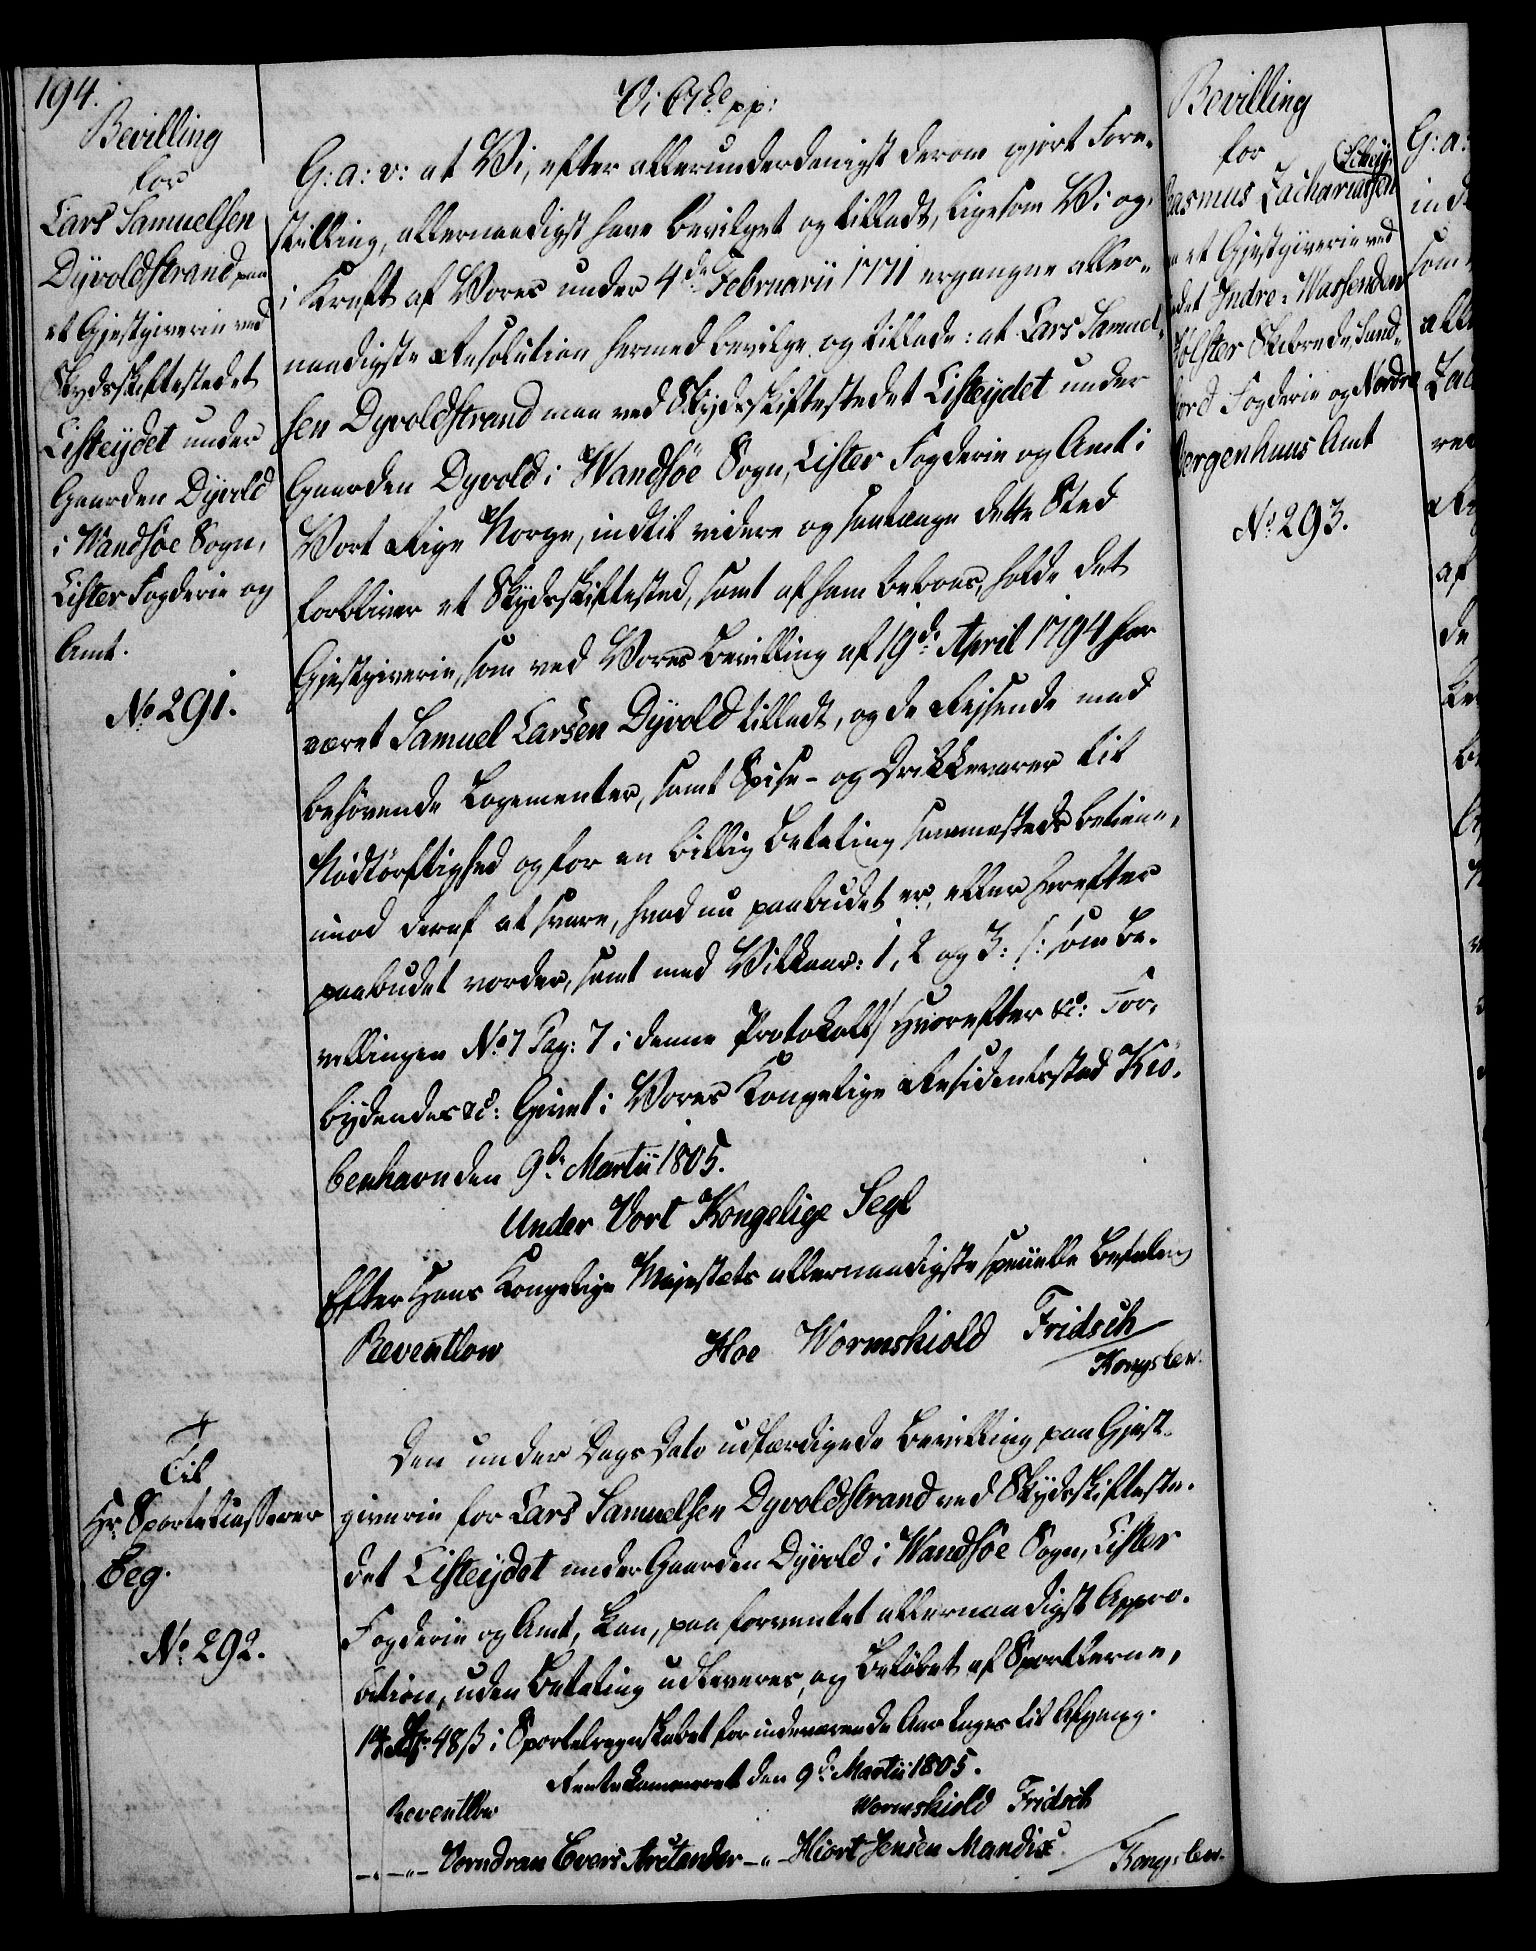 194.
Bevilling
for
Lars Samuelsen
Dyvoldstrand, paa
et Gjestgiverie ved
Skydsskiftestedet
Listeydet under
Gaarden Dyvold
i Wandsöe Sogn,
Lister Fogderie og
Amt.
No 291.
Vi C7de pp:
G: a: v: at Vi, efter allerunderdanigst derom gjort Fore-
stilling, allernaadigst have bevilget og tilladt, ligesom Vi og,
i Kraft af Vores under 4de Februarii 1771 ergangne aller-
naadigste Resolution hermed bevilge og tillade: at Lars Samuel-
sen Dyvoldstrand maa ved Skydsskiftestedet Listeydet under
Gaarden Dyvold i Wandsöe Sogn, Lister Fogderie og Amt i
Vort Rige Norge, indtil videre og saalænge dette Sted
forbliver et Skydsskiftested, samt af ham beboes, holde det
Gjestgiverie, som ved Vores Bevilling af 19de April 1794 har
været Samuel Larsen Dyvold tilladt, og de Reisende med
behövende Logementer, samt Spise- og Drikkevarer til
Nödtörftighed og for en billig Betaling sammesteds betiene,
imod deraf at svare, hvad nu paabudet er, eller herefter
paabudet vorder, samt med Vilkaar: 1, 2 og 3: /: som Be-
villingen No 7 Pag: 7 i denne Protokoll / Hvorefter &c: For-
bydendes &c: Givet i Vores Kongelige Residentsstad Kiö-
benhavn den 9de Martii 1805.
Under Vort Kongelige Segl
Efter Hans Kongelige Majestæts allernaadigste specielle Befaling
Reventlow Hoe Wormskiold Fridsch
Kongslev.
Til
Hr Sportelcasserer
Beg.
No 292.
Den under Dags Dato udfærdigede Bevilling paa Gjest-
giverie for Lars Samuelsen Dyvoldstrand ved Skydsskifteste-
det Listeydet under Gaarden Dyvold i Wandsöe Sogn, Lister
Fogderie og Amt, kan, paa forventet allernaadigst Appro-
bation, uden Betaling udleveres, og Belöbet af Sportlerne,
14 Rd 48 ß i Sportelregnskabet for indeværende Aar tages til Afgang.
Rentekammeret den 9de Martii 1805.
Reventlow Wormskiold Fridsch
Vorndran Evers Arctander Hiort Jensen Mandix
Kongslev.
Bevilling
for
Rasmus Zachariasen
et Gjestgiverie ved
Indre-Wassenden
Holster Skibrede, Sand-
Fogderie og Nordre
Bergenhuus Amt
No 293.
G: a: